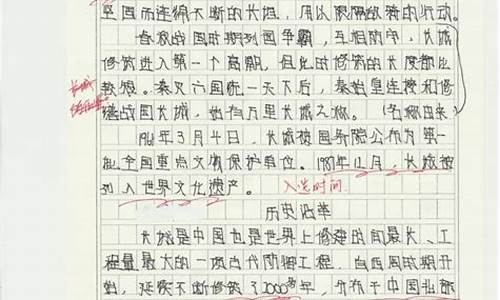 坚固而连绵不断的长垣，用以限隔敌骑的行动。
春秋战国时期列国争霸，互相防守，长城
修筑进入第一个高潮，但此时修筑的长度都比
较短。秦灭六国统一天下后，秦始皇连接和修
缮战国长城，始有万里长城之称。(名称由来)
长城
1961年3月4日，长城被国务院公布为第一
批全国重点文物保护单位。1987年12月，长城被
列入世界文化遗产。 入选时间
历史沿革
长城是中国也是世界上修建时间最长、工
程量最大的一项古代防御工程，自西周时期开
始，延续不断修筑了2000多年，分布于中国北部